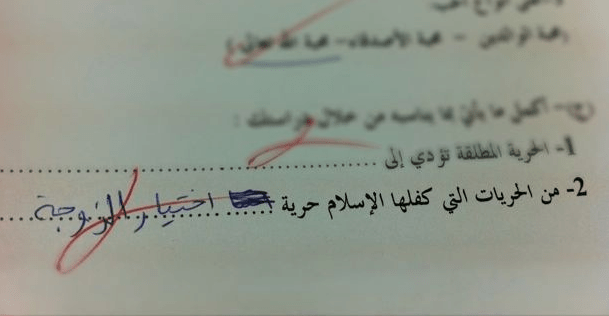 (محبة الوالدين – محبة الأصدقاء – محبة الله تعالى)
ج- أكمل ما يأتي بما يناسبه من خلال دراستك :
1- الحرية المطلقة تؤدي إلى ..............................
2- من الحريات التي كفلها الإسلام حرية اختيار الزوجة